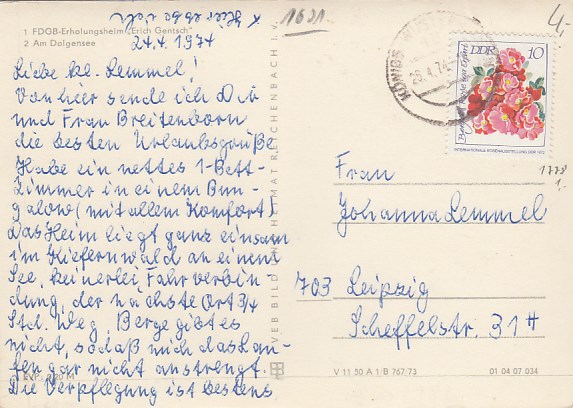 x Hier
1 FDGB-Erholungsheim „Erich Gentsch"
2 Am Dolgensee
24.4.1974
Liebe kl. Lemmel!
Von hier sende ich Dir
und Frau Breitenborn
die besten Urlaubsgrüße.
Habe ein nettes 1-Bett-
Zimmer in einem Bun-
galow (mit allem Komfort).
Das Heim liegt ganz einsam
im Kiefernwald an einem
See, keinerlei Fahrverbin-
dung, der nächste Ort 3/4
Std. Weg. Berge gibt es
nicht, sodaß mich das Lau-
fen gar nicht anstrengt.
Die Verpflegung ist bestens
VEB BILD UND HEIMAT REICHENBACH I. V.
1621
4,-
KÖNIGS
.4.74
DDR 10
INTERNATIONALE ROSENAUSSTELLUNG DDR 1972
1778
1.
Frau
Johanna Lemmel
703 Leipzig
Scheffelstr. 31 H
V 11 50 A 1/B 767/73
01 04 07 034